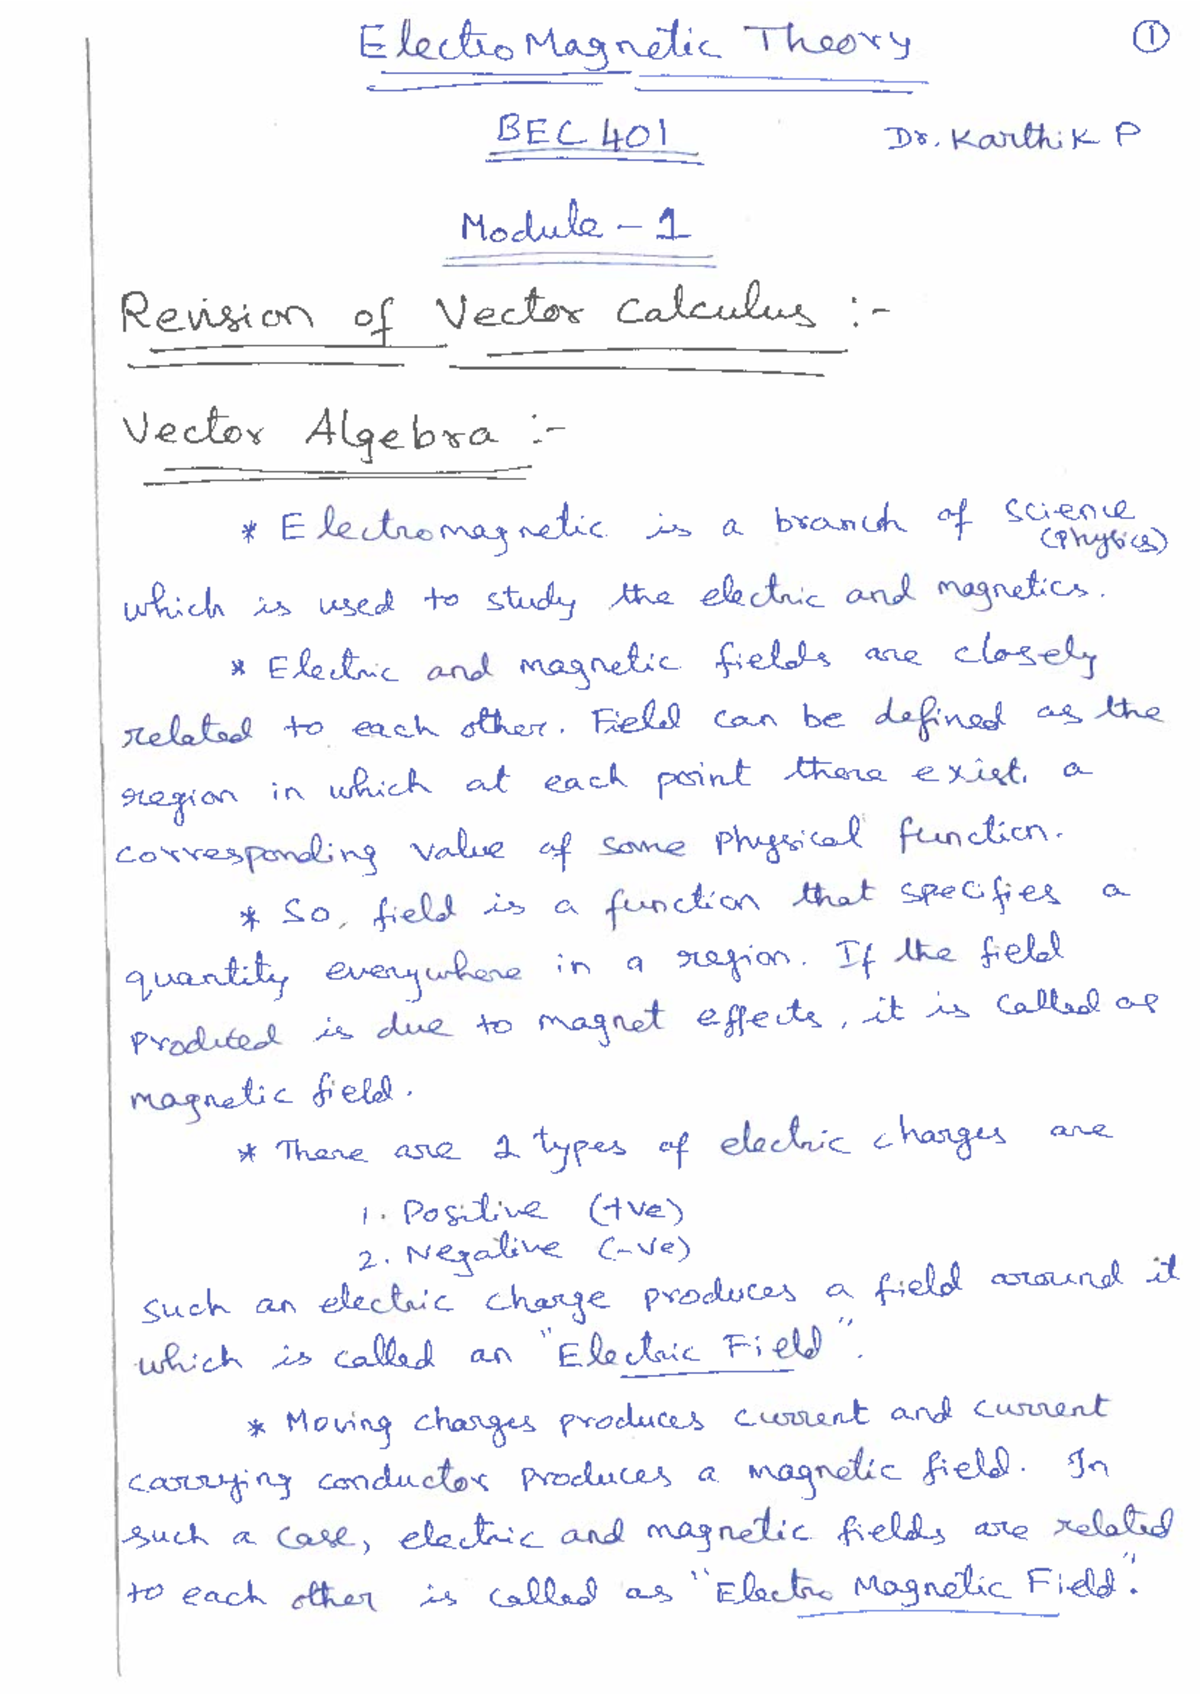 ElectroMagnetic Theory
①
BEC 401
Dr. Karthik P
Module - 1
Revision of Vector Calculus :-
Vector Algebra :-
* Electromagnetic is a branch of science
(Physics)
which is used to study the electric and magnetics.
* Electric and magnetic fields are closely
related to each other. Field can be defined as the
region in which at each point there exist. a
corresponding value of some physical function.
* So, field is a function that specifies a
quantity everywhere in a region. If the field
produced is due to magnet effects, it is called as
magnetic field.
* There are 2 types of electric charges are
1. Positive (+ve)
2. Negative (-ve)
such an electric charge produces a field around it
which is called an "Electric Field".
* Moving charges produces current and current
carrying conductor produces a magnetic field. In
such a case, electric and magnetic fields are related
to each other is called as "Electro Magnetic Field".